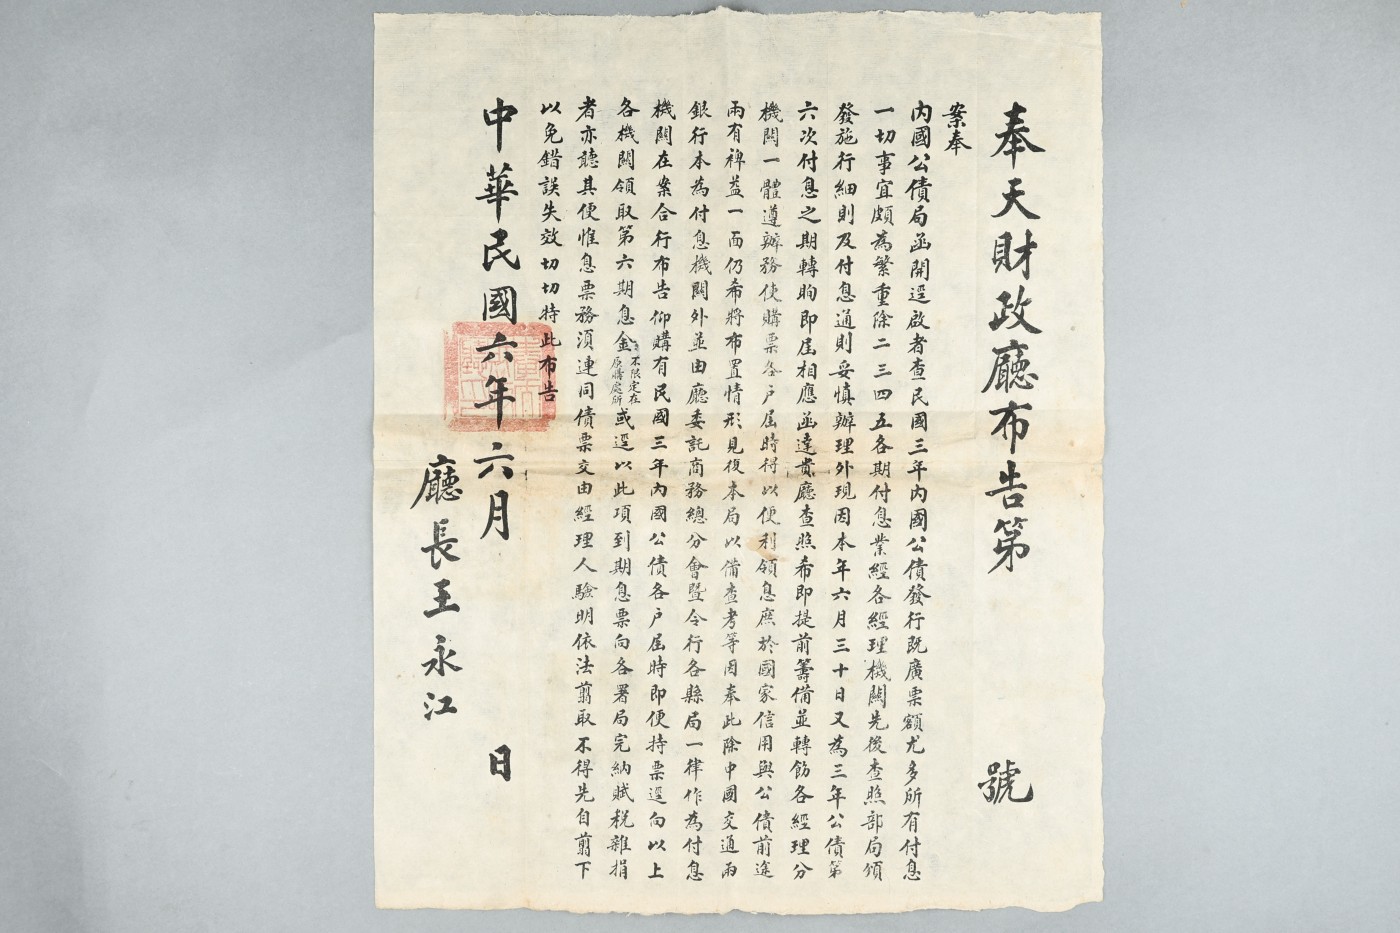 奉天財政廳布告第　號
案奉
內國公債局函開逕啟者查民國三年內國公債發行既廣票額尤多所有付息
一切事宜頗為繁重除二三四五各期付息業經各經理機關先後查照部局頒
發施行細則及付息通則妥慎辦理外現因本年六月三十日又為三年公債第
六次付息之期轉眴即屆相應函達貴廳查照希即提前籌備並轉飭各經理分
機關一體遵辦務使購票各戶屆時得以便利領息庶於國家信用與公債前途
兩有裨益一面仍希將布置情形見復本局以備查考等因奉此除中國交通兩
銀行本為付息機關外並由廳委託商務總分會暨令行各縣局一律作為付息
機關在案合行布告仰購有民國三年內國公債各戶屆時即便持票逕向以上
各機關領取第六期息金不限定在原購處所或逕以此項到期息票向各署局完納賦稅雜捐
者亦聽其便惟息票務須連同債票交由經理人驗明依法剪取不得先自剪下
以免錯誤失效切切特此布告
中華民國六年六月　日
廳長王永江